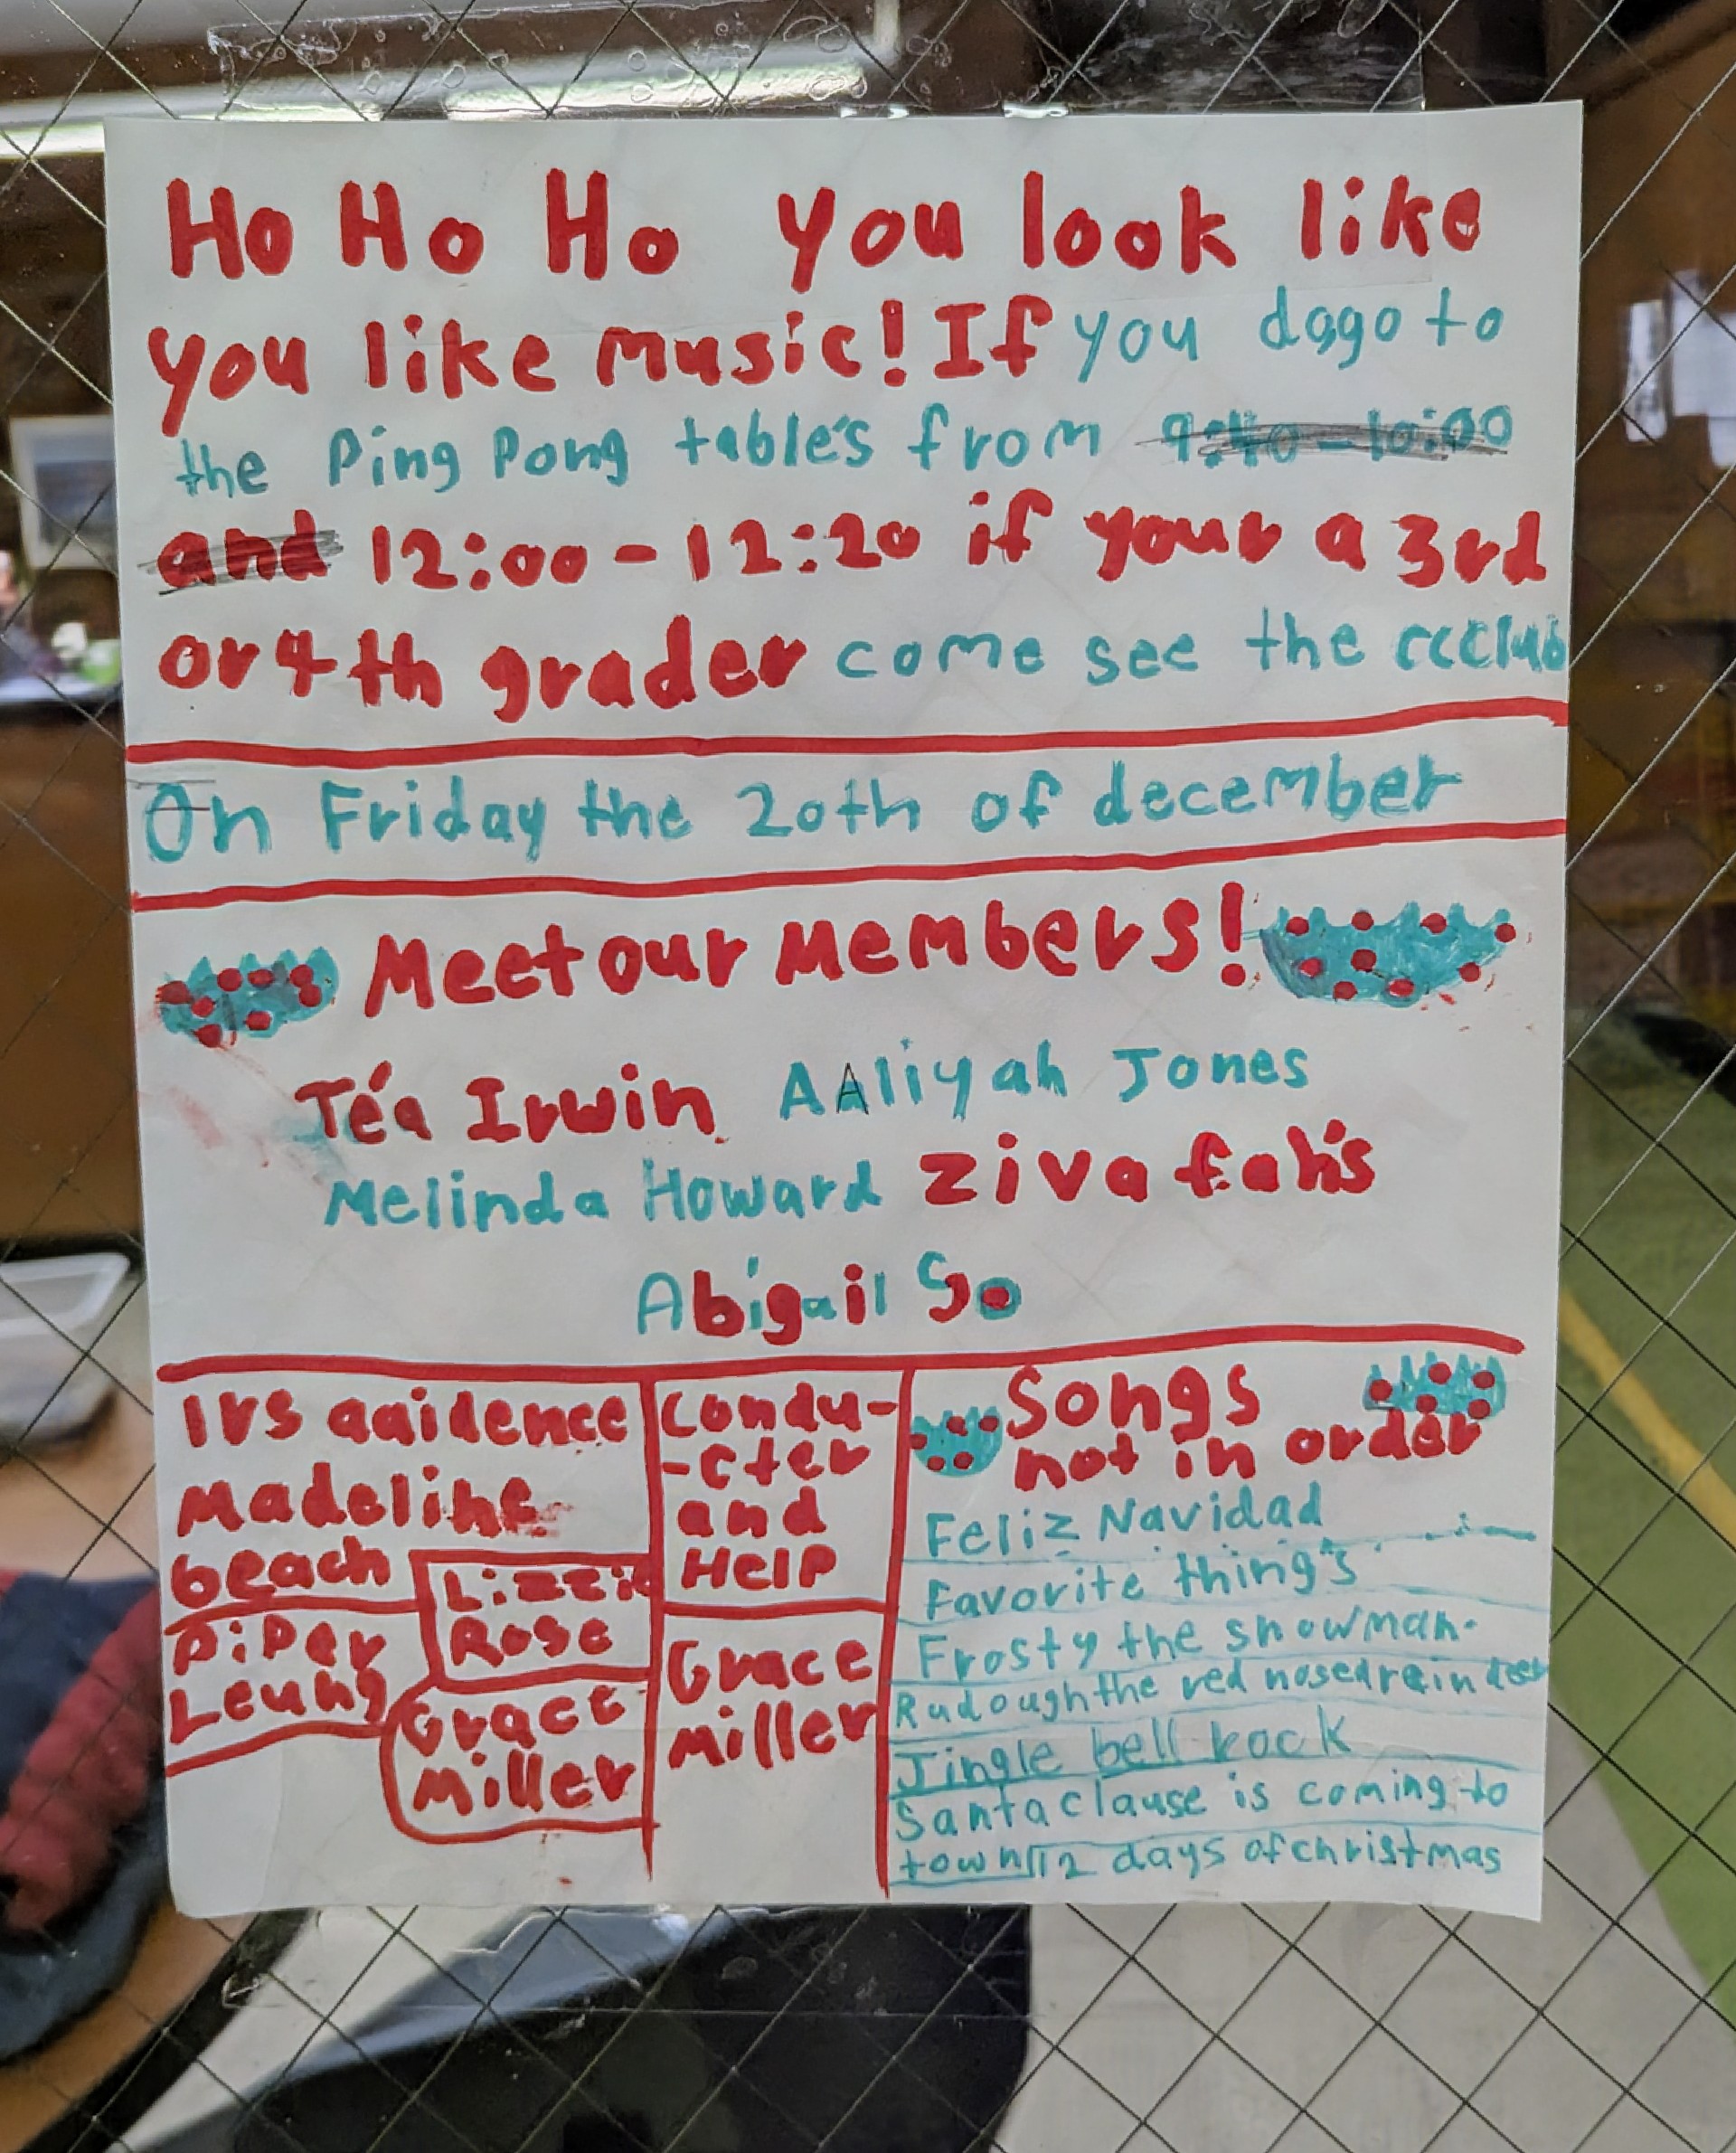 Ho Ho Ho you look like
you like music! If you dogo to
the Ping Pong table's from 9:40-10:00
and 12:00-12:20 if your a 3rd
or 4th grader come see the ccclub
On Friday the 20th of december
Meet our Members!
Téa Irwin AAliyah Jones
Melinda Howard ziva fah's
Abigail So
Irs aaidence
Madeline
beach
Lizzie
Rose
Piper
Leung
Grace
Miller
Condu-
-cter
and
Help
Grace
Miller
Songs
not in order
Feliz Navidad
Favorite thing's
Frosty the snowman.
Rudough the red nosed rein deer
Jingle bell rock
Santa clause is coming to
town 12 days of christmas